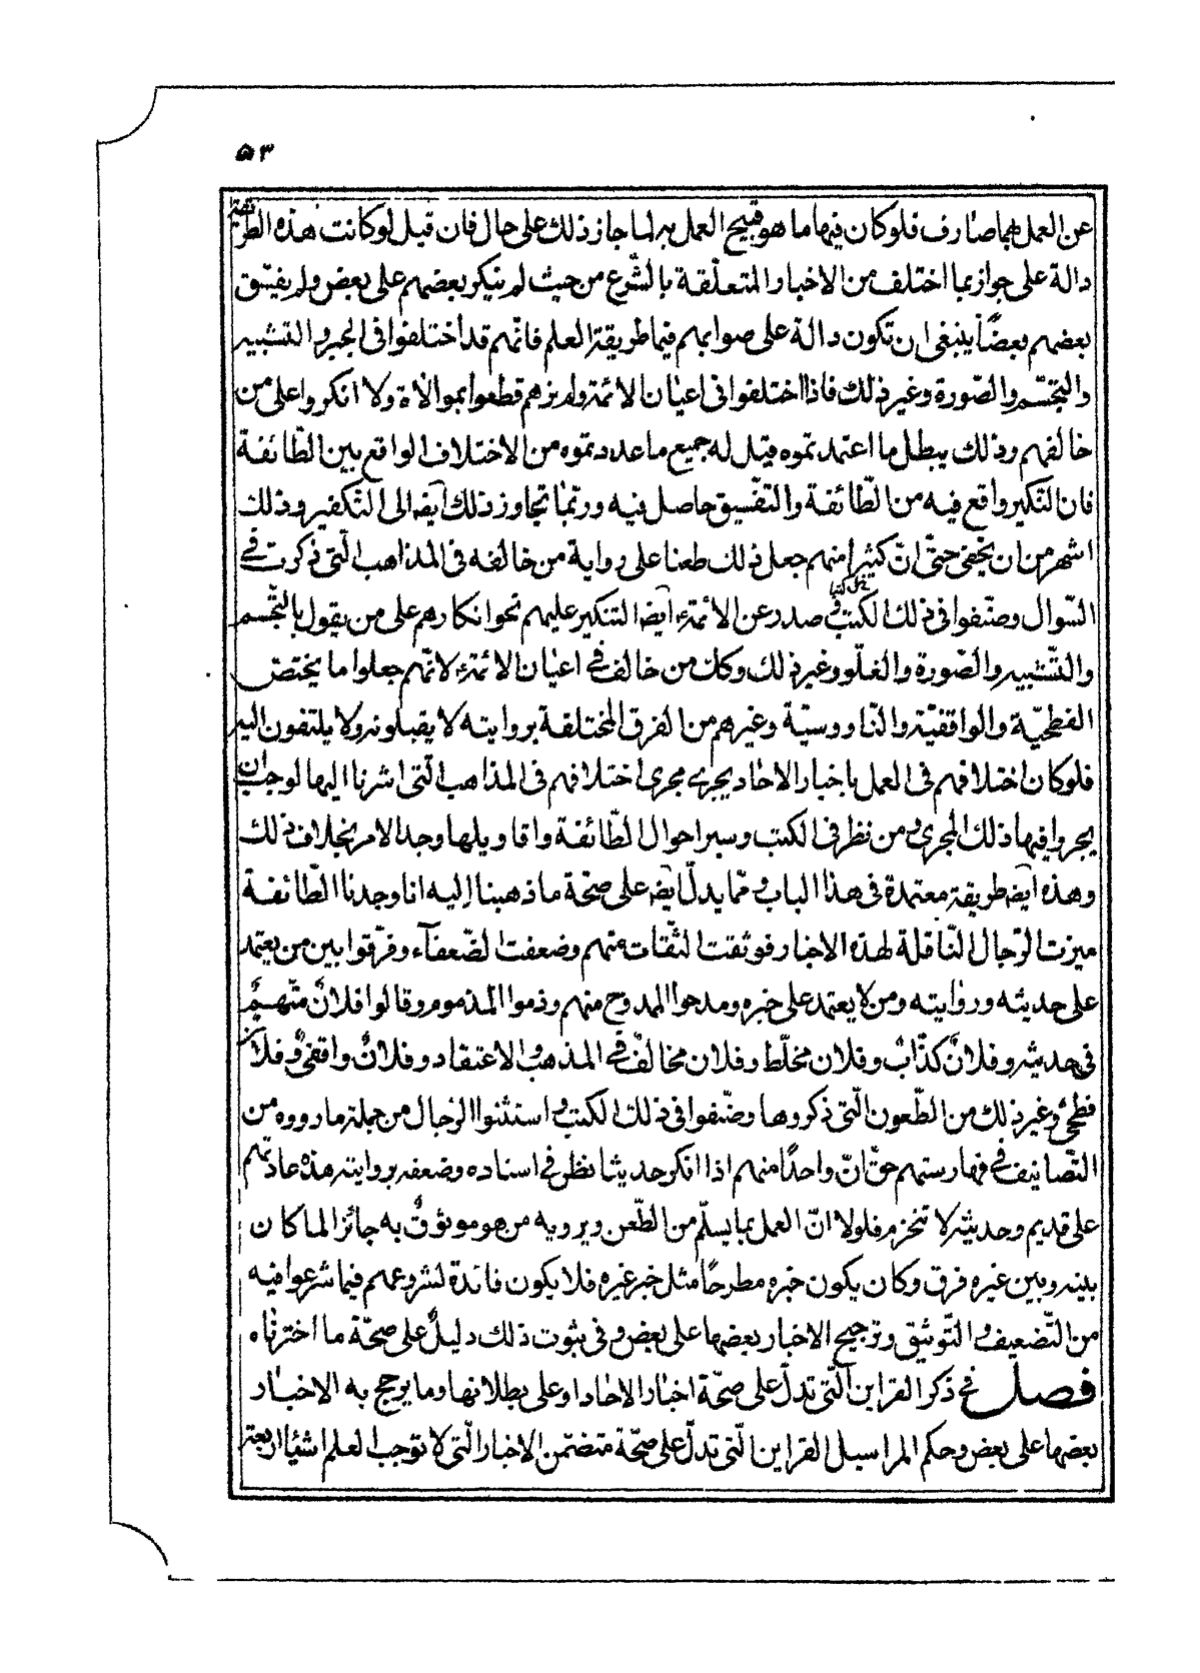 ۵۳
عن العمل بهما صارف فلو كان فيهما ما هو قبيح العمل به لما جاز ذلك على حال فان قيل لو كانت هذه الطريقة
دالة على جواز بما اختلف من الاخبار المتعلقة بالشّرع من حيث لم ينكر بعضهم على بعض ولم يفسّق
بعضهم بعضًا ينبغى ان تكون دالة على صوابهم فيما طريقة العلم فانّهم قد اختلفوا فى الجبر والتشبيه
والتجسّم والصّورة وغير ذلك فاذا اختلفوا فى اعيان الائمّة ولم نرهم قطعوا بموالاة ولا انكروا على من
خالفهم وذلك يبطل ما اعتمدتموه قيل له جميع ما عددتموه من الاختلاف الواقع بين الطّائفة
فان النّكير واقع فيه من الطّائفة والتفسيق حاصل فيه وربّما تجاوز ذلك ايضه الى التّكفير وذلك
اشهر من ان يخفى حتّى انّ كثيرا منهم جعل ذلك طعنا على رواية من خالفه فى المذاهب الّتى ذكرت فے
السّوال وصنّفوا فى ذلك الكتب و صدر عن الائمّةء ايضه التنكير عليهم نحو انكارهم على من يقول بالتجّسم
والتّشبيه والصّورة والغلّو وغير ذلك وكك من خالف فے اعيان الائمّةء لانّهم جعلوا ما يختصّ
الفطحيّة والواقفيّة والنّاووسيّة وغيرهم من الفرق المختلفة بروايته لا يقبلونه ولا يلتفون اليه
فلو كان اختلافهم فى العمل باخبار الاحاد يجرے مجرى اختلافهم فى المذاهب الّتى اشرنا اليها لوجب ان
يجروا فيها ذلك المجرى و من نظر فى الكتب وسبر احوال الطّائفة واقاويلها وجد الامر بخلاف ذلك
وهذه ايضه طريقة معتمدة فى هذا الباب و ممّا يدلّ ايضه على صحّة ما ذهبنا اليه انا وجدنا الطّائفة
ميزت الرّجال النّاقلة لهذه الاخبار فوثقت الثّقات منهم وضعفت الضّعفآء وفرّقوا بين من يعتمد
على حديثه وروايته ومن لا يعتمد على خبره ومدحوا الممدوح منهم وذموا المذموم وقالوا فلانٌ متّهمٌ
فى حديثه وفلانٌ كذّابٌ وفلان مخلّط وفلان مخالفٌ فے المذهب والاعتقاد وفلانٌ واقفىٌ وفلانٌ
فطحىٌ وغير ذلك من الطّعون الّتى ذكروها وصّنفوا فى ذلك الكتب و استثنوا الرّجال من جملة ما رووه من
التّصانيف فے فهارستهم حتّى انّ واحدًا منهم اذا انكر حديثا نظر فے اسناده وضعفه بروايته هذه عادتهم
على قديم وحديثه لا تنخزم فلولا انّ العمل بما يسلّم من الطّعن ويرويه من هو موثوقٌ به جائز لما كان
بينه وبين غيره فرق وكان يكون خبره مطرحًا مثل خبر غيره فلا يكون فائدة لشروعهم فيما شرعوا فيه
من التّضعيف والتّوثيق وترجيح الاخبار بعضها على بعض و فى ثبوت ذلك دليلٌ على صحّة ما اخترناه
فصل فے ذكر القراين الّتى تدلّ على صحّة اخبار الاحاد او على بطلانها وما يرجح به الاخبار
بعضها على بعض وحكم المراسيل القراين الّتى تدلّ على صحّة متضمّن الاخبار الّتى لا توجب العلم اشيٰا اربعة